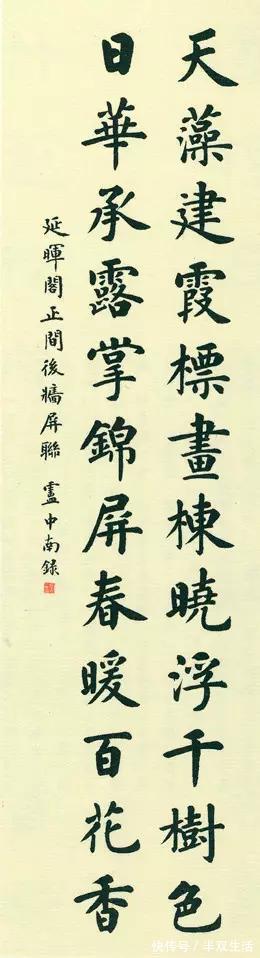 天藻建霞標畫棟曉浮千樹色
日華承露掌錦屏春暖百花香
延暉閣正間後牆屏聯 盧中南錄
快传号／半双生活